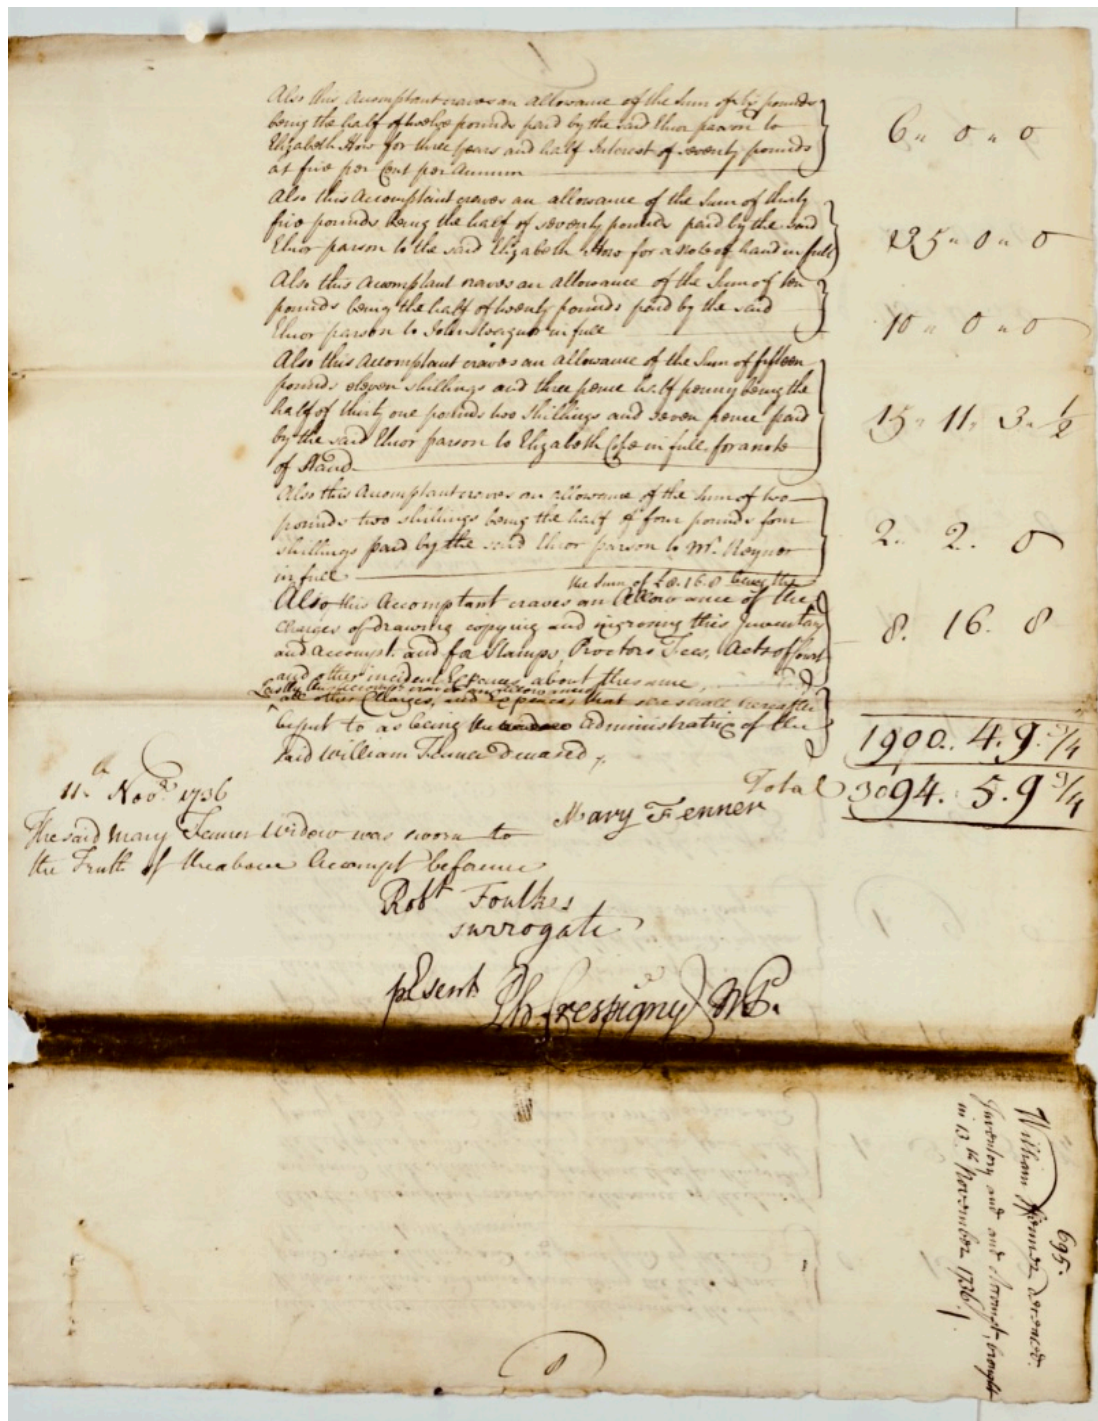 Also this Accomptant craves an allowance of the Sum of six pounds
being the half of twelve pounds paid by the said Elinor parson to
Elizabeth How for three years and half Interest of seventy pounds
at five per Cent per Annum
6 " 0 " 0
Also this Accomptant craves an allowance of the Sum of thirty
five pounds being the half of seventy pounds paid by the said
Elinor parson to the said Elizabeth How for a note of hand in full
35 " 0 " 0
Also this Accomptant craves an allowance of the Sum of ten
pounds being the half of twenty pounds paid by the said
Elinor parson to John in full
10 " 0 " 0
Also this Accomptant craves an allowance of the Sum of fifteen
pounds eleven shillings and three pence half penny being the
half of thirty one pounds two shillings and seven pence paid
by the said Elinor parson to Elizabeth in full for a note
of Hand
15 " 11 " 3 " 1/2
Also this Accomptant craves an allowance of the Sum of two
pounds two shillings being the half of four pounds four
shillings paid by the said Elinor parson to Mr. Reynor
in full
2. 2. 0
the Sum of £8.16.8 being the
Also this Accomptant craves an Allowance of the
Charges of drawing copying and ingrossing this Inventary
and Accompt. and for Stamps, Proctors Fees, Acts of Court
and other incident Expences about the same,
8. 16. 8
Lastly this Accomptant craves an allowance
all other Charges, and Expences, that she shall hereafter
be put to as being the Administratrix of the
said William Fenner deceased.
1900.. 4. 9. 3/4
Total 3094. 5. 9 3/4
11th Novr. 1736
Mary Fenner
The said Mary Fenner Widow was sworn to
the Truth of the above Accompt before me
Robt Foulkes
surrogate
pSent
Crespigny NP.
695.
William Fenner deceased.
Inventory and and Accompt, brought
in 13th November 1736.